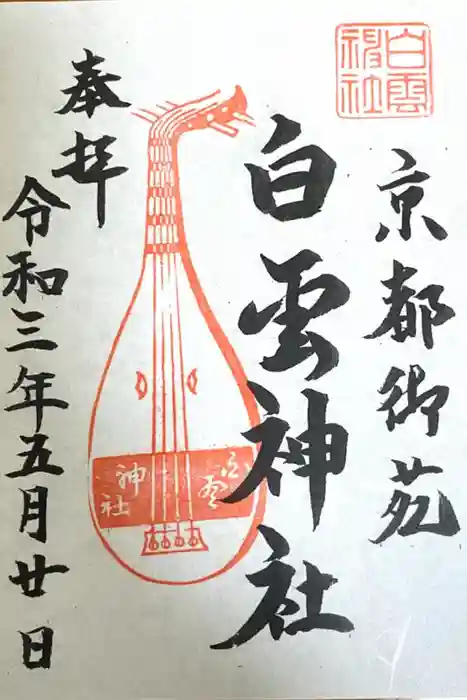 白雲神社
京都御苑
白雲神社
奉拝
白雲
神社
令和三年五月廿日